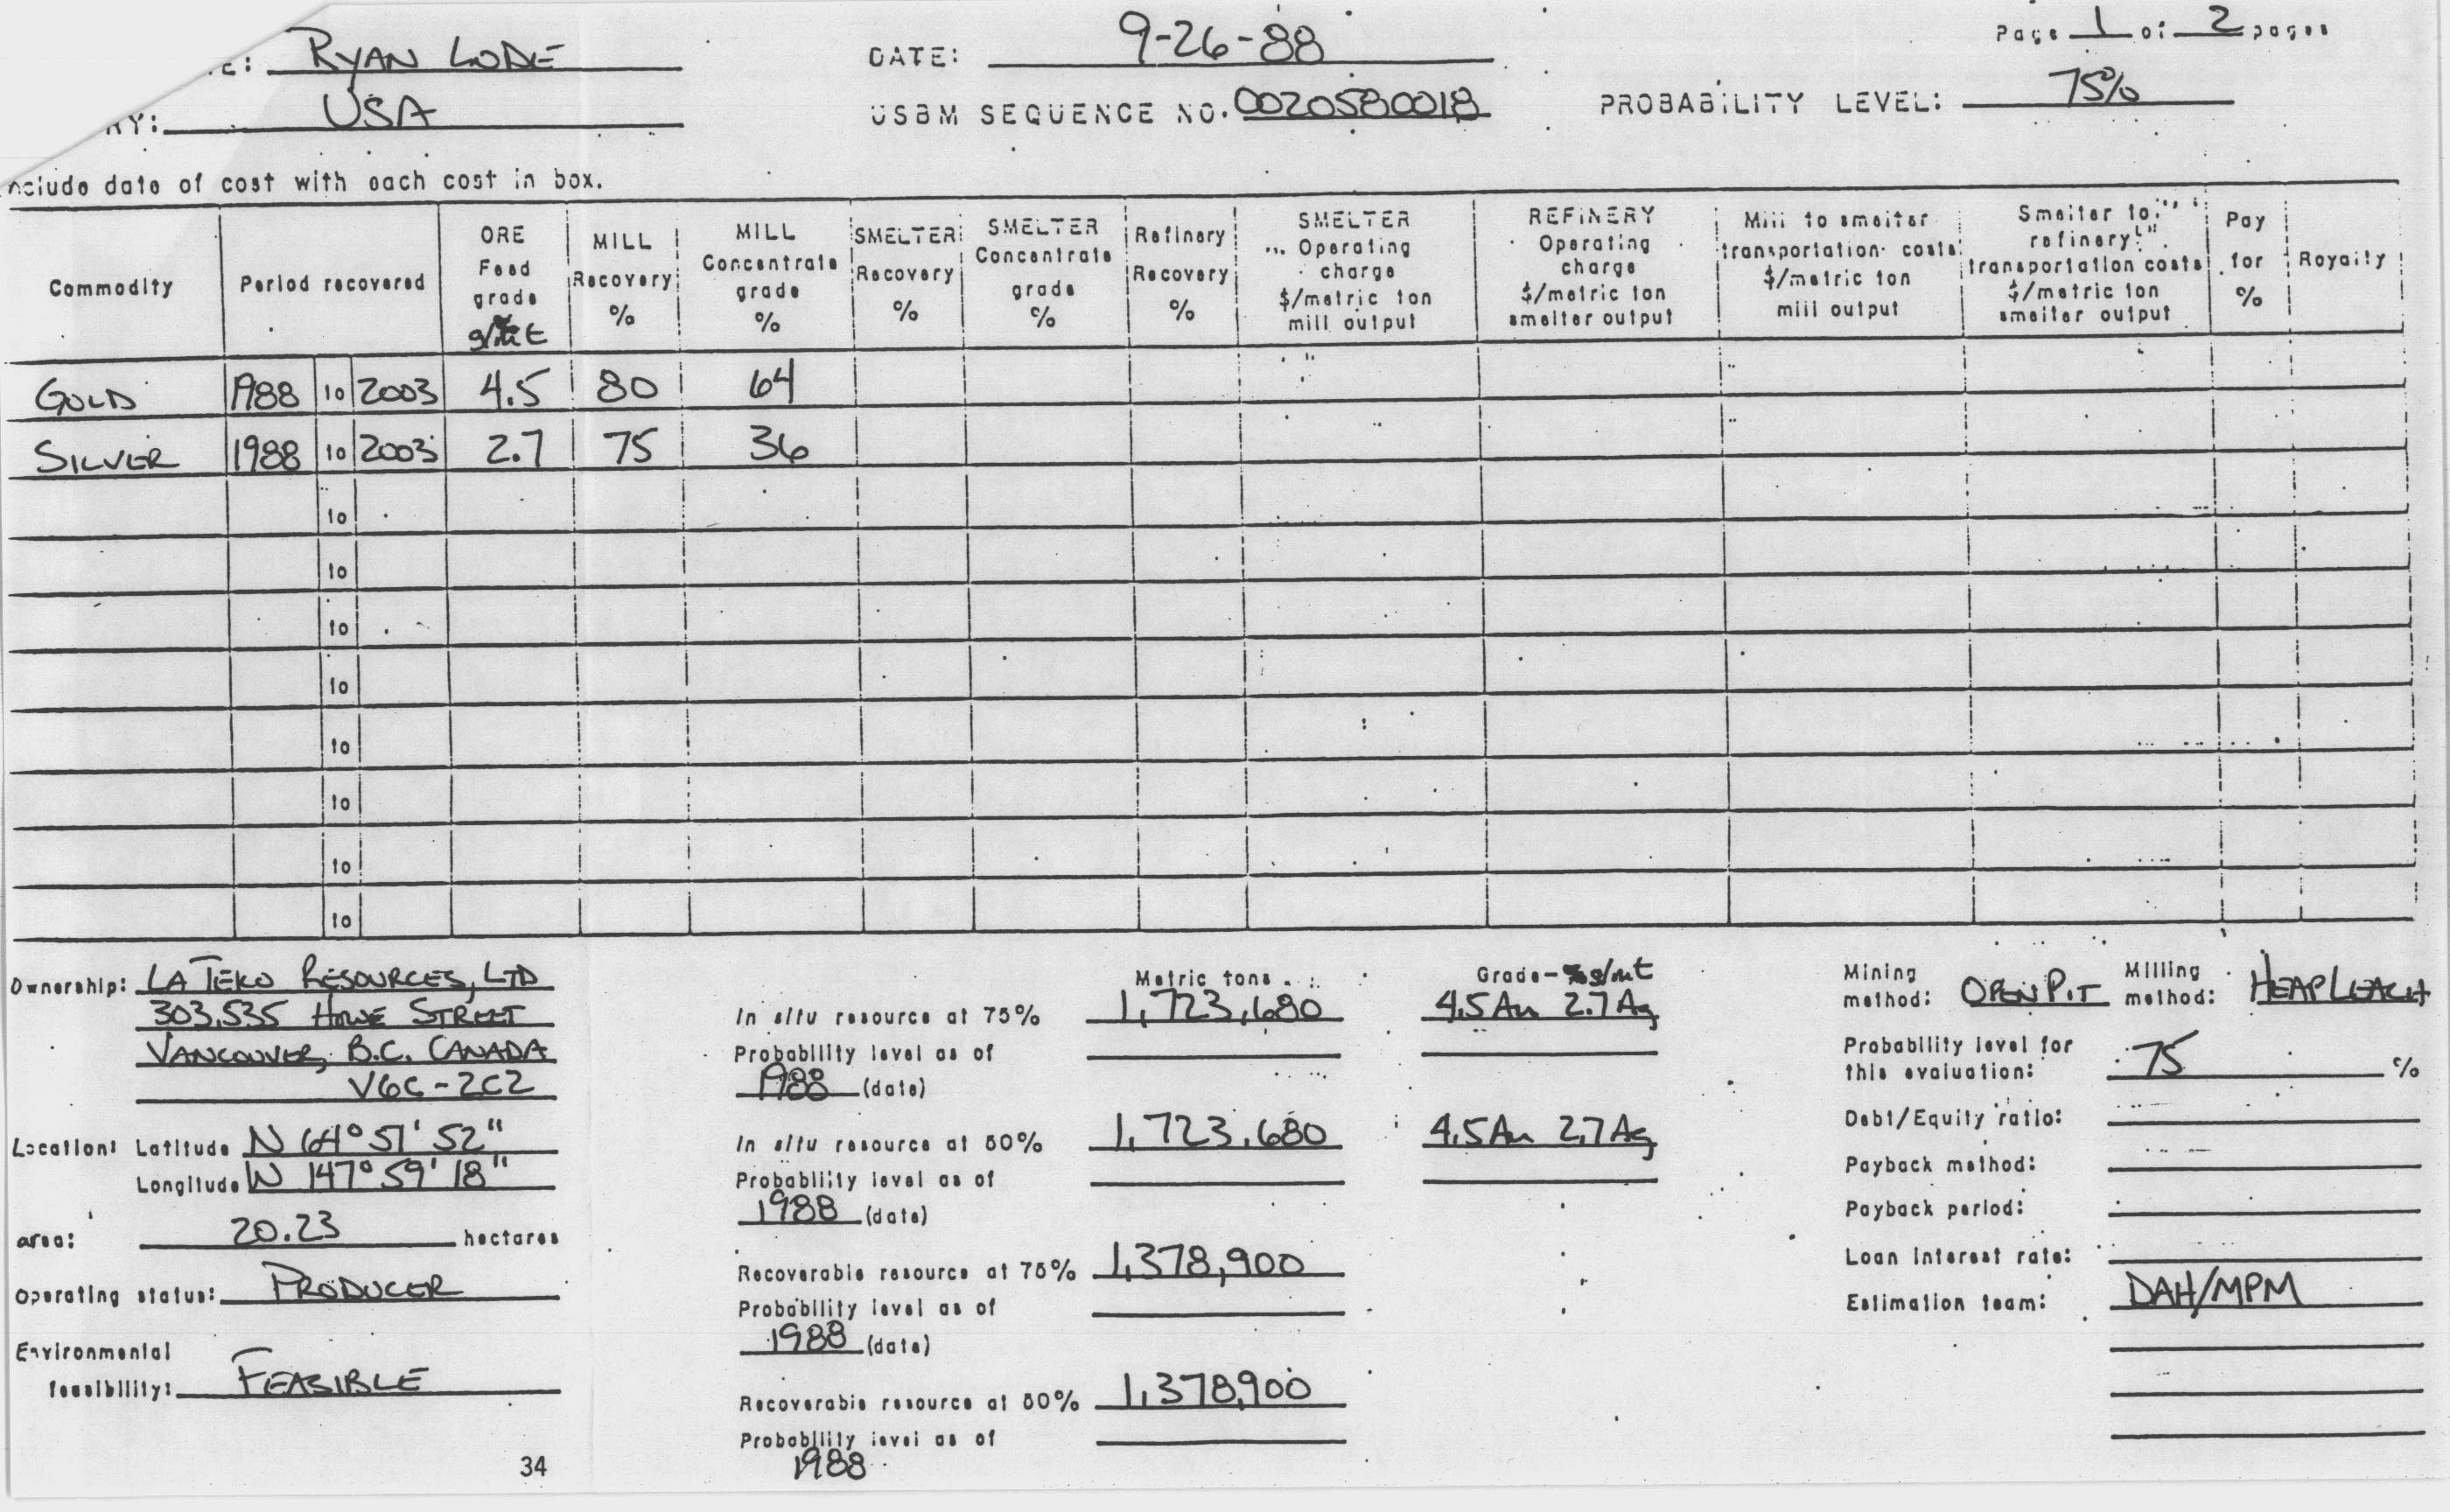 E: RYAN LODE DATE: 9-26-88 Page 1 of 2 pages
RY: USA USBM SEQUENCE NO. 0020580018 PROBABILITY LEVEL: 75%
nclude date of cost with each cost in box.
Commodity Period recovered ORE Feed grade g/mt MILL Recovery % MILL Concentrate grade % SMELTER Recovery % SMELTER Concentrate grade % Refinery Recovery % SMELTER Operating charge $/metric ton mill output REFINERY Operating charge $/metric ton smelter output Mill to smelter transportation costs $/metric ton mill output Smelter to refinery transportation costs $/metric ton smelter output Pay for % Royalty
GOLD 1988 to 2003 4.5 80 64
SILVER 1988 to 2003 2.7 75 36
to
to
to
to
to
to
to
to
Ownership: LA TEKO RESOURCES, LTD
303.535 HOWE STREET
VANCOUVER, B.C. CANADA
V6C-2C2
Location: Latitude N 64° 51' 52"
Longitude W 147° 59' 18"
area: 20.23 hectares
Operating status: PRODUCER
Environmental
feasibility: FEASIBLE
34
Metric tons Grade-% g/mt
In situ resource at 75% 1,723,680 4.5 Au 2.7 Ag
Probability level as of
1988 (date)
In situ resource at 50% 1,723,680 4.5 Au 2.7 Ag
Probability level as of
1988 (date)
Recoverable resource at 75% 1,378,900
Probability level as of
1988 (date)
Recoverable resource at 50% 1,378,900
Probability level as of
1988
Mining method: OPEN PIT Milling method: HEAP LEACH
Probability level for
this evaluation: 75 %
Debt/Equity ratio:
Payback method:
Payback period:
Loan interest rate:
Estimation team: DAH/MPM